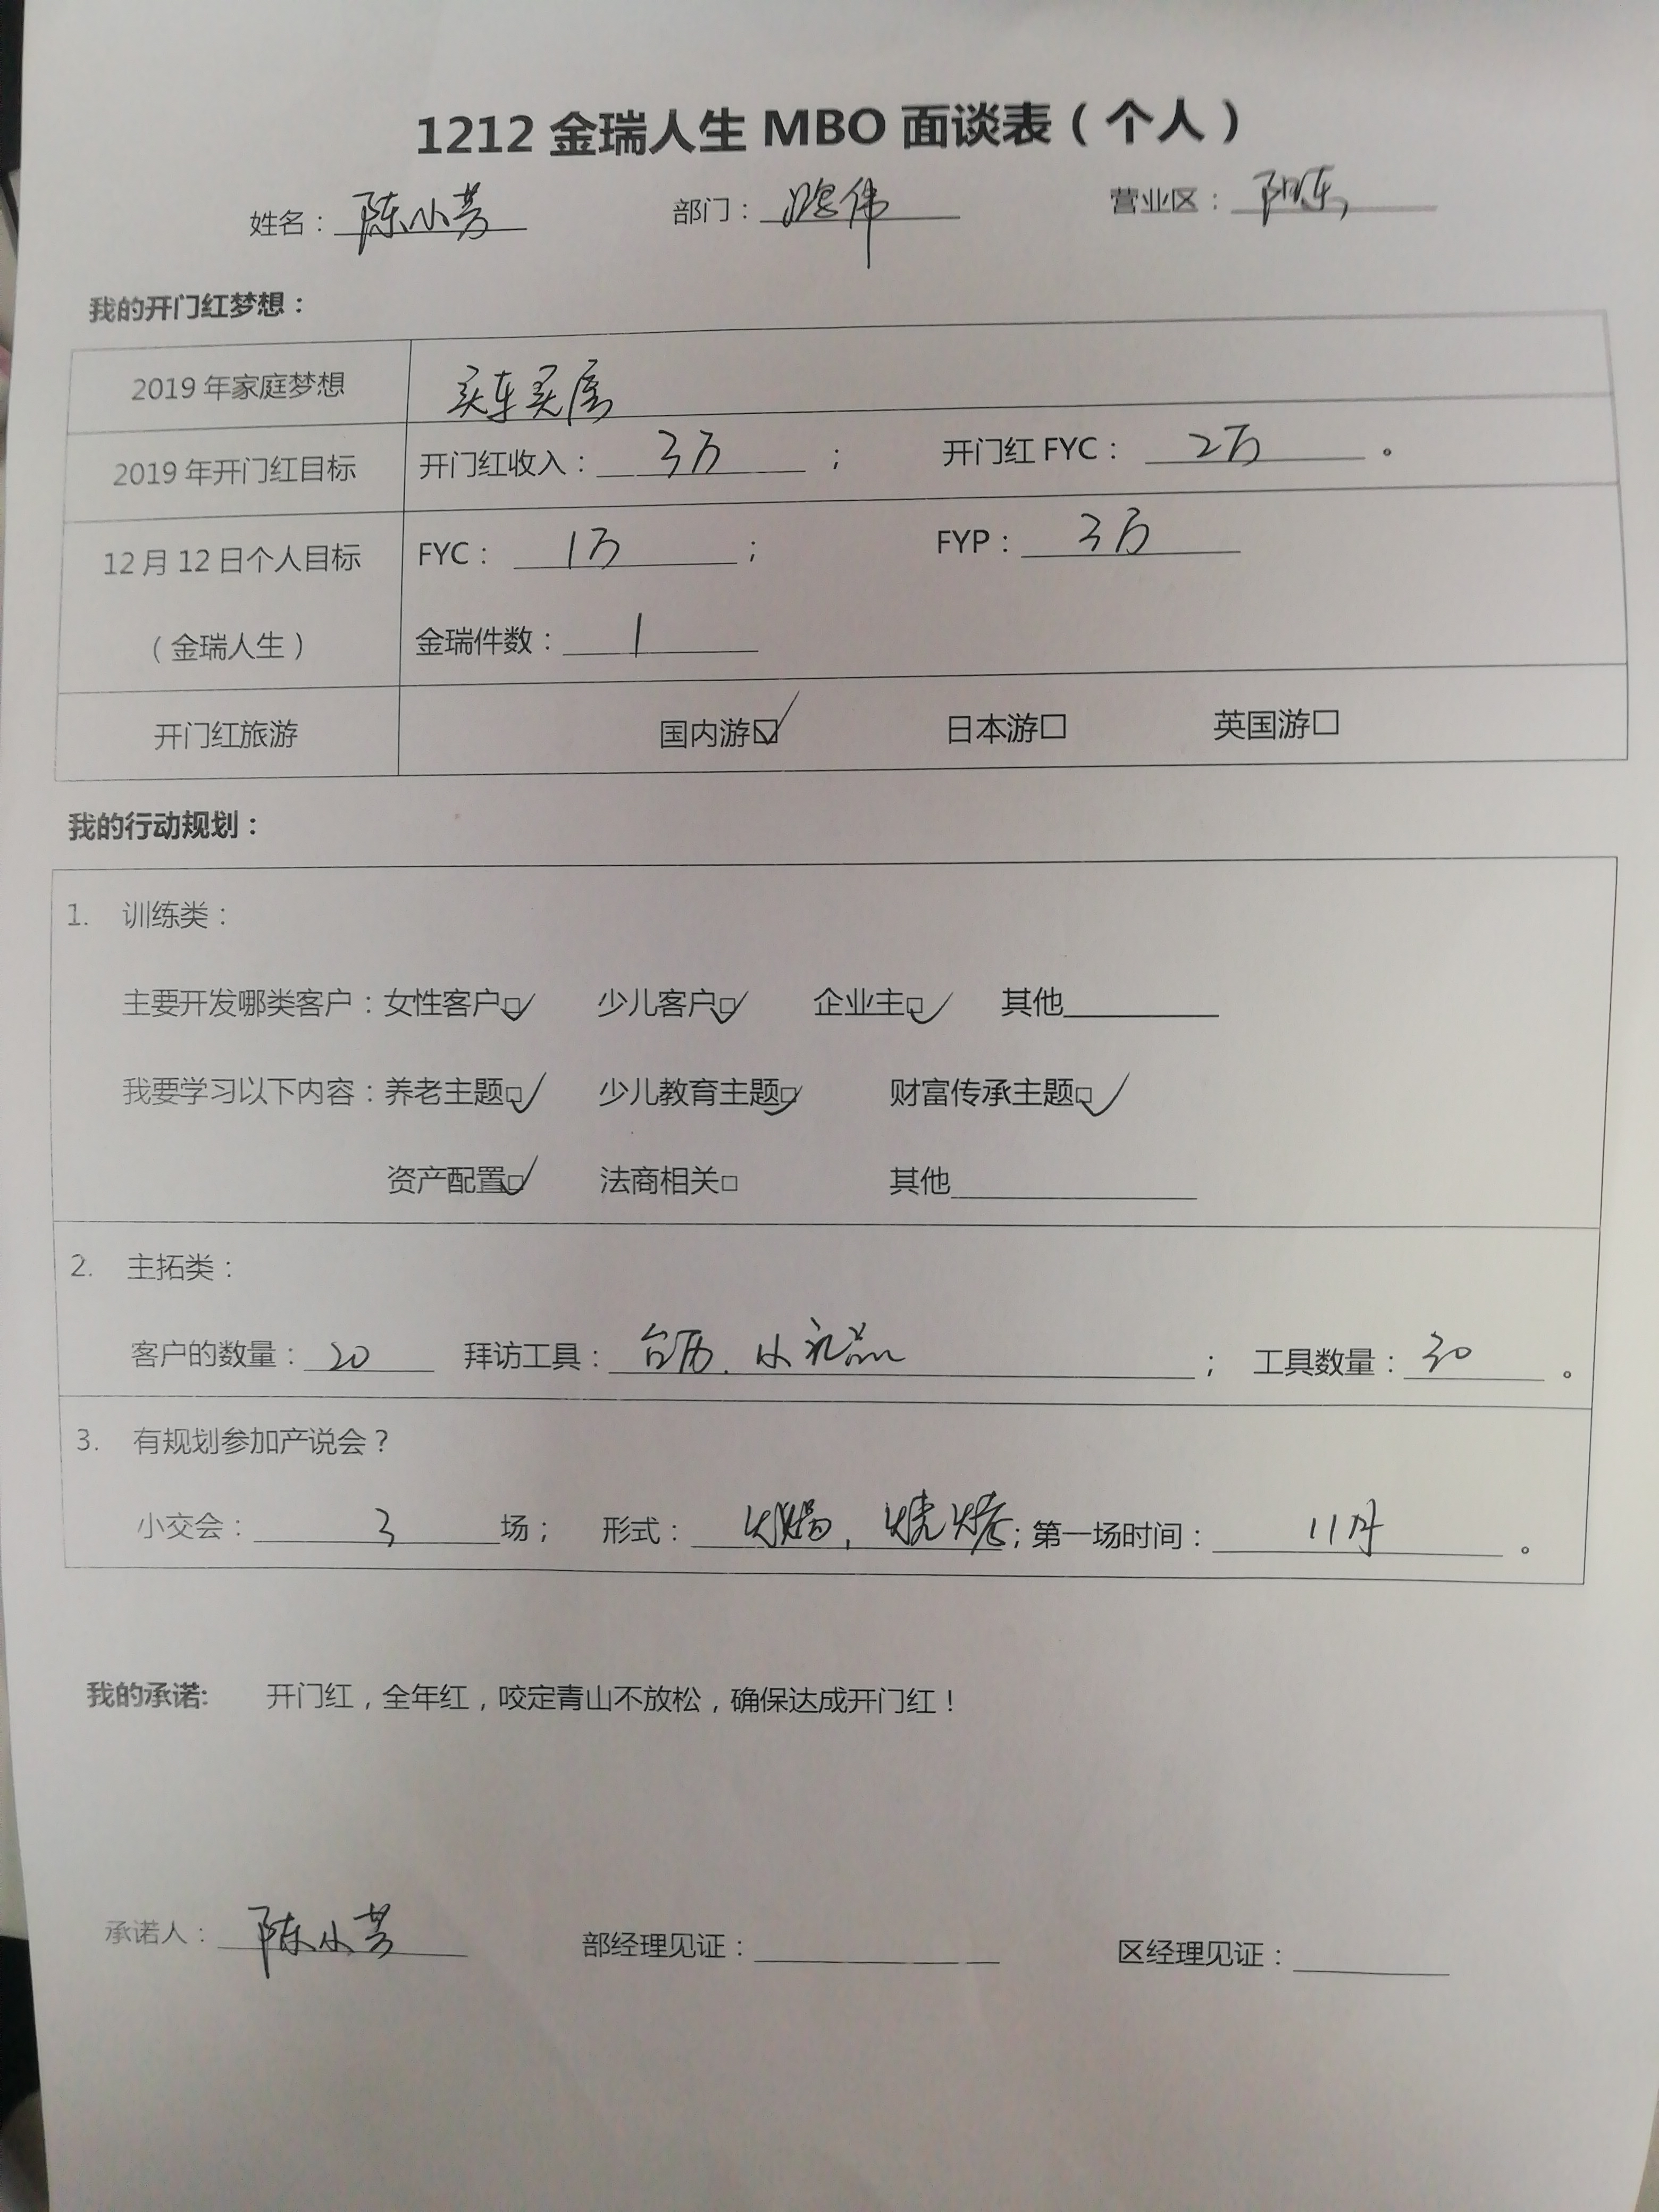 1212金瑞人生 MBO 面谈表（个人）
姓名：陈小芳 部门：伟 营业区：阳东
我的开门红梦想：
2019年家庭梦想 买车买房
2019年开门红目标 开门红收入：3万； 开门红FYC：2万。
12月12日个人目标 FYC：1万； FYP：3万
（金瑞人生） 金瑞件数：1
开门红旅游 国内游☑ 日本游□ 英国游□
我的行动规划：
1. 训练类：
主要开发哪类客户：女性客户☑ 少儿客户☑ 企业主☑ 其他
我要学习以下内容：养老主题☑ 少儿教育主题☑ 财富传承主题☑
资产配置☑ 法商相关□ 其他
2. 主拓类：
客户的数量：20 拜访工具：台历、小礼品； 工具数量：30。
3. 有规划参加产说会？
小交会：3场； 形式：火锅，烧烤；第一场时间：11月。
我的承诺: 开门红，全年红，咬定青山不放松，确保达成开门红！
承诺人：陈小芳 部经理见证： 区经理见证：